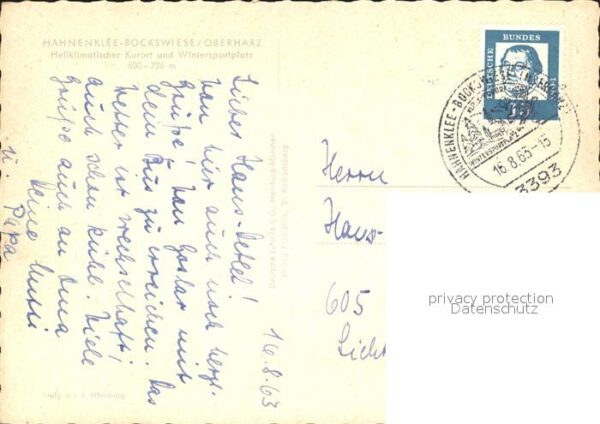 HAHNENKLEE-BOCKSWIESE/OBERHARZ
Heilklimatischer Kurort und Wintersportplatz
600–726 m
16.8.63
Liebes Hans-Detlef!
Von hier auch noch herzl.
Grüße! Von Goslar mit
dem Bus zu erreichen. Das
Wetter ist wechselhaft!
auch schon kühl. Viele
Grüße auch an Oma
Deine Mutti
u Papa
DEUTSCHE BUNDESPOST
15
HAHNENKLEE-BOCKSWIESE (OBERHARZ)
WINTERSPORTPLATZ
16.8.63-13
3393
Herrn
Hans-
605
privacy protection
Datenschutz